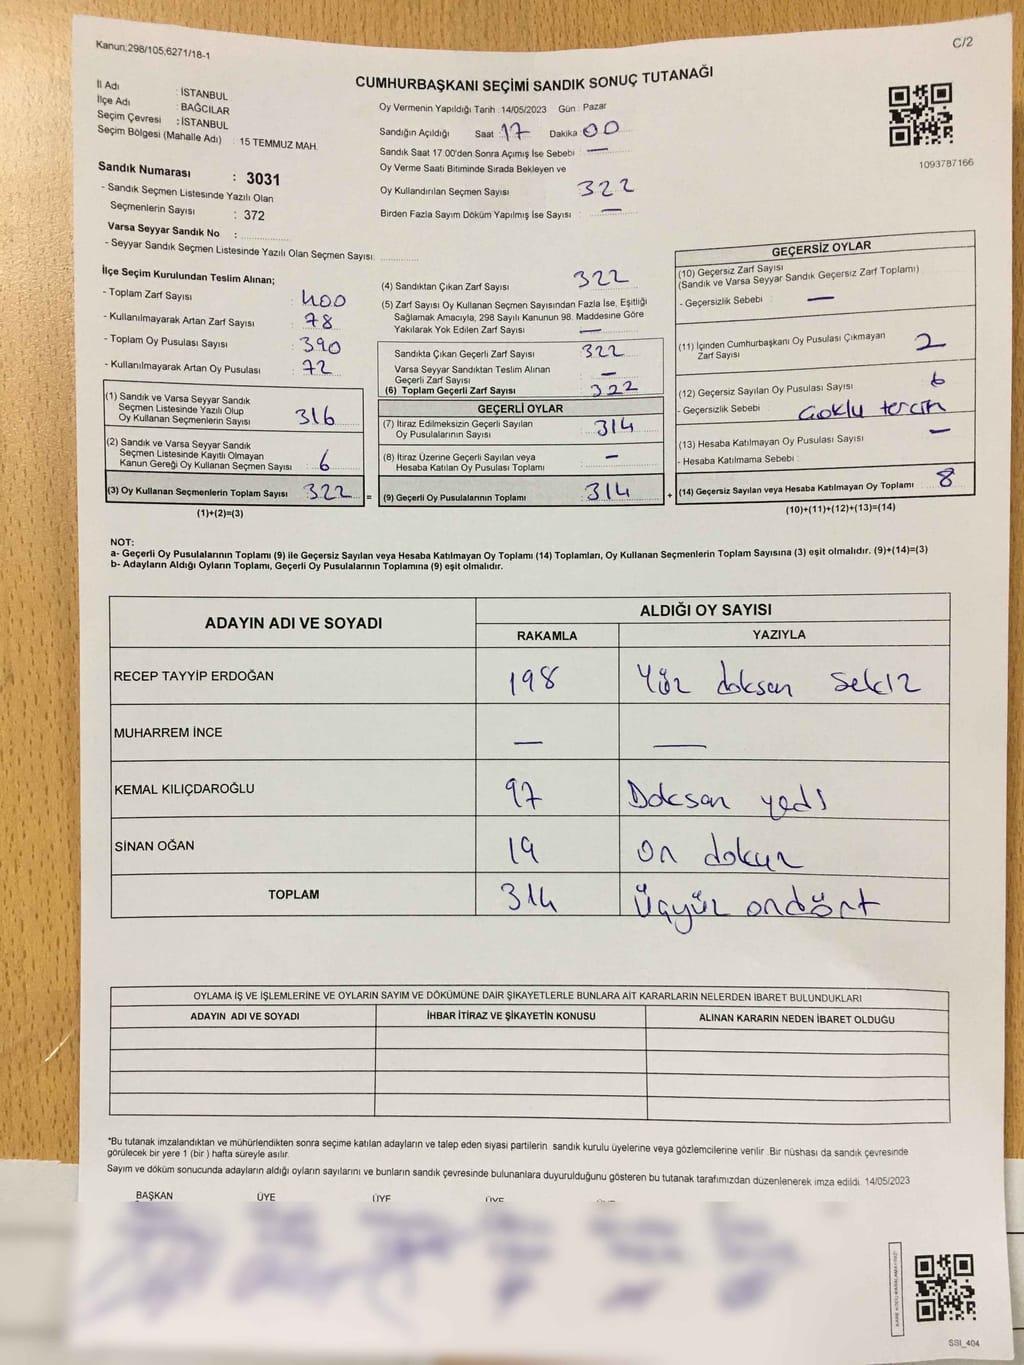 Kanun;298/105,6271/18-1
C/2
CUMHURBAŞKANI SEÇİMİ SANDIK SONUÇ TUTANAĞI
İl Adı : İSTANBUL
İlçe Adı : BAĞCILAR
Seçim Çevresi : İSTANBUL
Seçim Bölgesi (Mahalle Adı) : 15 TEMMUZ MAH.
Sandık Numarası : 3031
- Sandık Seçmen Listesinde Yazılı Olan
Seçmenlerin Sayısı : 372
Varsa Seyyar Sandık No :
- Seyyar Sandık Seçmen Listesinde Yazılı Olan Seçmen Sayısı:
Oy Vermenin Yapıldığı Tarih : 14/05/2023 Gün : Pazar
Sandığın Açıldığı Saat : 17 Dakika 00
Sandık Saat 17:00'den Sonra Açımış İse Sebebi : —
Oy Verme Saati Bitiminde Sırada Bekleyen ve
Oy Kullandırılan Seçmen Sayısı 322
Birden Fazla Sayım Döküm Yapılmış İse Sayısı : —
1093787166
İlçe Seçim Kurulundan Teslim Alınan;
- Toplam Zarf Sayısı : 400
- Kullanılmayarak Artan Zarf Sayısı : 78
- Toplam Oy Pusulası Sayısı : 390
- Kullanılmayarak Artan Oy Pusulası : 72
(1) Sandık ve Varsa Seyyar Sandık
Seçmen Listesinde Yazılı Olup
Oy Kullanan Seçmenlerin Sayısı 316
(2) Sandık ve Varsa Seyyar Sandık
Seçmen Listesinde Kayıtlı Olmayan
Kanun Gereği Oy Kullanan Seçmen Sayısı : 6
(3) Oy Kullanan Seçmenlerin Toplam Sayısı : 322 =
(1)+(2)=(3)
(4) Sandıktan Çıkan Zarf Sayısı 322
(5) Zarf Sayısı Oy Kullanan Seçmen Sayısından Fazla İse, Eşitliği
Sağlamak Amacıyla, 298 Sayılı Kanunun 98. Maddesine Göre
Yakılarak Yok Edilen Zarf Sayısı : —
Sandıkta Çıkan Geçerli Zarf Sayısı : 322
Varsa Seyyar Sandıktan Teslim Alınan
Geçerli Zarf Sayısı : —
(6) Toplam Geçerli Zarf Sayısı : 322
GEÇERLİ OYLAR
(7) İtiraz Edilmeksizin Geçerli Sayılan
Oy Pusulalarının Sayısı : 314
(8) İtiraz Üzerine Geçerli Sayılan veya
Hesaba Katılan Oy Pusulası Toplamı : —
(9) Geçerli Oy Pusulalarının Toplamı : 314 +
GEÇERSİZ OYLAR
(10) Geçersiz Zarf Sayısı
(Sandık ve Varsa Seyyar Sandık Geçersiz Zarf Toplamı)
- Geçersizlik Sebebi : —
(11) İçinden Cumhurbaşkanı Oy Pusulası Çıkmayan
Zarf Sayısı 2
(12) Geçersiz Sayılan Oy Pusulası Sayısı 6
- Geçersizlik Sebebi : Çoklu tercih
(13) Hesaba Katılmayan Oy Pusulası Sayısı —
- Hesaba Katılmama Sebebi :
(14) Geçersiz Sayılan veya Hesaba Katılmayan Oy Toplamı : 8
(10)+(11)+(12)+(13)=(14)
NOT:
a- Geçerli Oy Pusulalarının Toplamı (9) ile Geçersiz Sayılan veya Hesaba Katılmayan Oy Toplamı (14) Toplamları, Oy Kullanan Seçmenlerin Toplam Sayısına (3) eşit olmalıdır. (9)+(14)=(3)
b- Adayların Aldığı Oyların Toplamı, Geçerli Oy Pusulalarının Toplamına (9) eşit olmalıdır.
ADAYIN ADI VE SOYADI
ALDIĞI OY SAYISI
RAKAMLA YAZIYLA
RECEP TAYYİP ERDOĞAN 198 Yüz doksan sekiz
MUHARREM İNCE — —
KEMAL KILIÇDAROĞLU 97 Doksan yedi
SİNAN OĞAN 19 on dokuz
TOPLAM 314 Üçyüz ondört
OYLAMA İŞ VE İŞLEMLERİNE VE OYLARIN SAYIM VE DÖKÜMÜNE DAİR ŞİKAYETLERLE BUNLARA AİT KARARLARIN NELERDEN İBARET BULUNDUKLARI
ADAYIN ADI VE SOYADI İHBAR İTİRAZ VE ŞİKAYETİN KONUSU ALINAN KARARIN NEDEN İBARET OLDUĞU
*Bu tutanak imzalandıktan ve mühürlendikten sonra seçime katılan adayların ve talep eden siyasi partilerin sandık kurulu üyelerine veya gözlemcilerine verilir .Bir nüshası da sandık çevresinde
görülecek bir yere 1 (bir ) hafta süreyle asılır.
Sayım ve döküm sonucunda adayların aldığı oyların sayılarını ve bunların sandık çevresinde bulunanlara duyurulduğunu gösteren bu tutanak tarafımızdan düzenlenerek imza edildi. 14/05/2023
BAŞKAN ÜYE ÜYE ÜYE
SSI_404